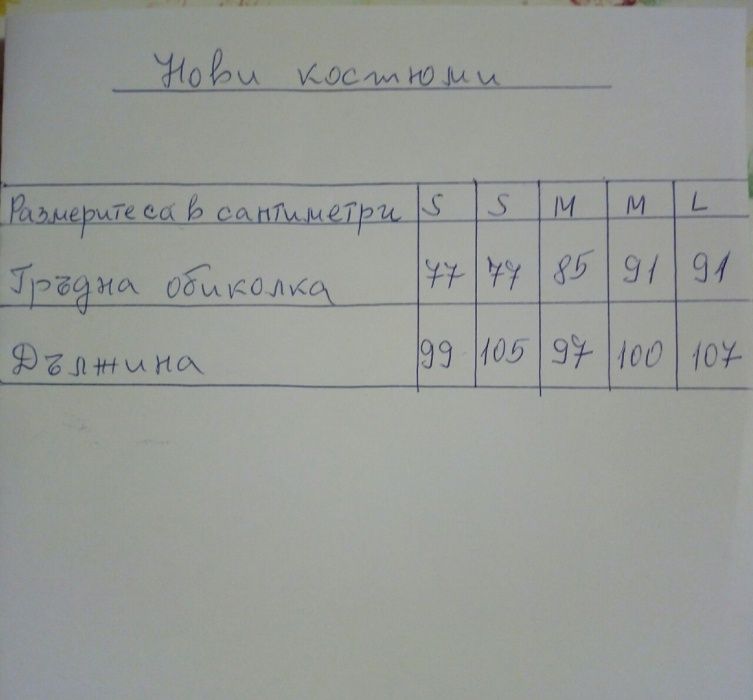 Нови костюми
Размерите са в сантиметри S S M M L
Гръдна обиколка 77 77 85 91 91
Дължина 99 105 97 100 107